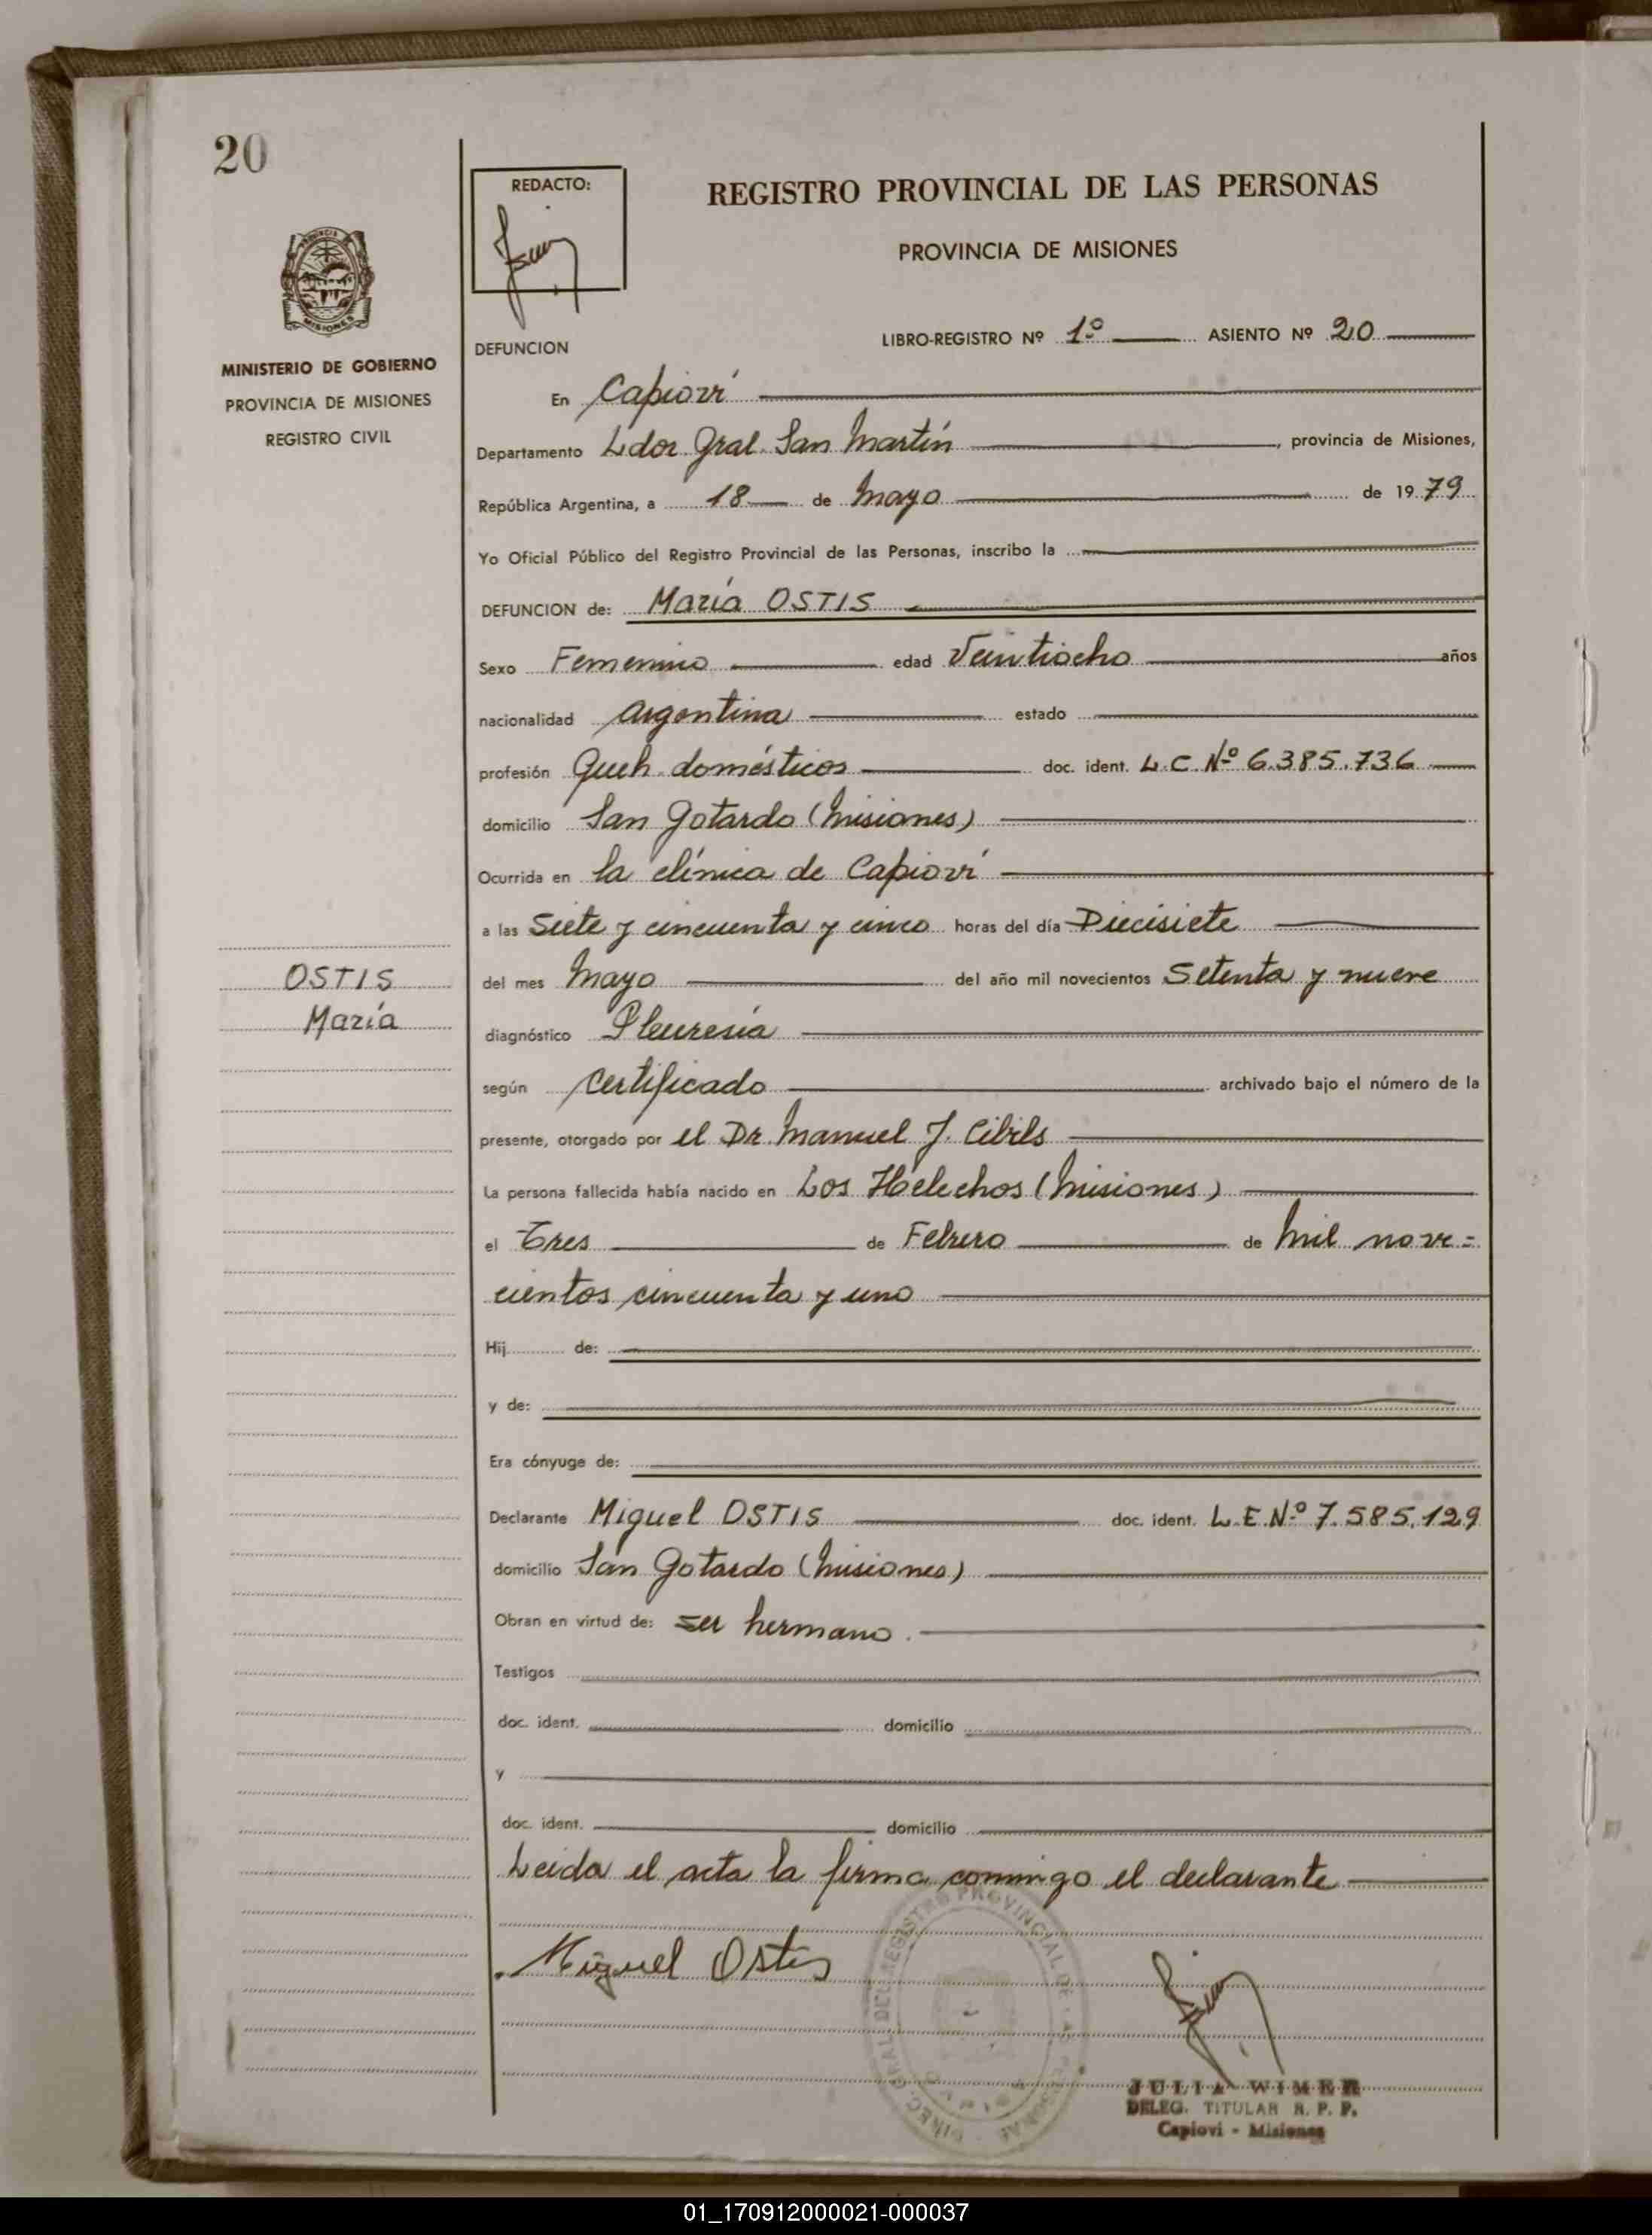 20
REDACTO:
REGISTRO PROVINCIAL DE LAS PERSONAS
PROVINCIA DE MISIONES
MISIONES
MINISTERIO DE GOBIERNO
PROVINCIA DE MISIONES
REGISTRO CIVIL
DEFUNCION
LIBRO-REGISTRO Nº 1º ASIENTO Nº 20
En Capioví
Departamento Ldor Gral. San Martín, provincia de Misiones,
República Argentina, a 18 de Mayo de 1979
Yo Oficial Público del Registro Provincial de las Personas, inscribo la
DEFUNCION de: María OSTIS
Sexo Femenino edad Veintiocho años
nacionalidad Argentina estado
profesión Queh. domésticos doc. ident. L.C. Nº 6.385.736
domicilio San Gotardo (Misiones)
Ocurrida en la clínica de Capioví
a las Siete y cincuenta y cinco horas del día Diecisiete
del mes Mayo del año mil novecientos Setenta y nueve
OSTIS
María
diagnóstico Pleuresía
según certificado archivado bajo el número de la
presente, otorgado por el Dr. Manuel J. Cibils
La persona fallecida había nacido en Los Helechos (Misiones)
el Tres de Febrero de Mil nove=
cientos cincuenta y uno
Hij de:
y de:
Era cónyuge de:
Declarante Miguel OSTIS doc. ident. L.E. Nº 7.585.129
domicilio San Gotardo (Misiones)
Obran en virtud de: ser hermano.
Testigos
doc. ident. domicilio
y
doc. ident. domicilio
Leida el acta la firma conmigo el declarante
Miguel Ostis
JULIA WIMER
DELEG. TITULAR R. P. P.
Capiovi - Misiones
01_170912000021-000037